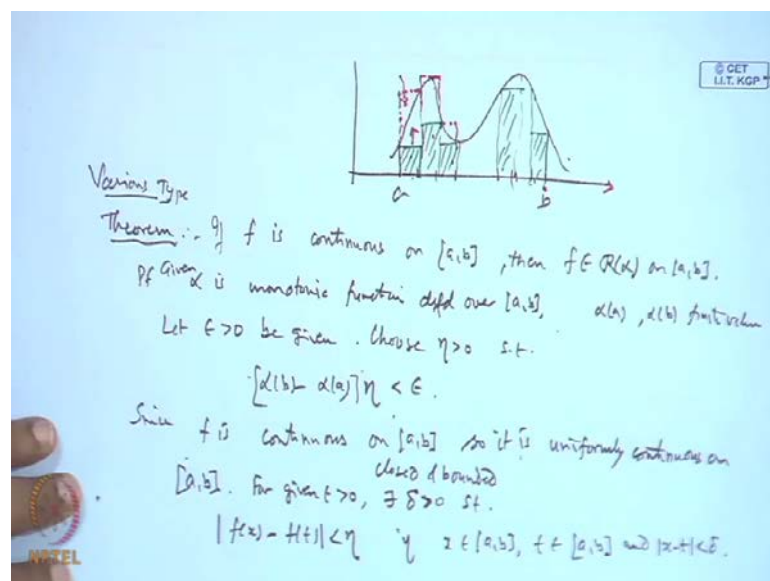 © CET
I.I.T. KGP
a
b
Various Type
Theorem :- If f is continuous on [a,b], then f ∈ R(α) on [a,b].
Pf Given α is monotonic function defd over [a,b], α(a), α(b) finite value
Let ε > 0 be given. Choose η > 0 s.t.
[α(b) - α(a)] η < ε.
Since f is continuous on [a,b] so it is uniformly continuous on
closed & bounded
[a,b]. For given ε > 0, ∃ δ > 0 st.
|f(x) - f(t)| < η if x ∈ [a,b], t ∈ [a,b] and |x-t| < δ.
NPTEL